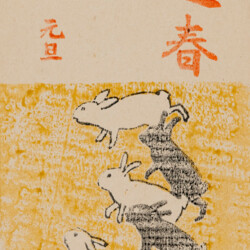 春
元旦